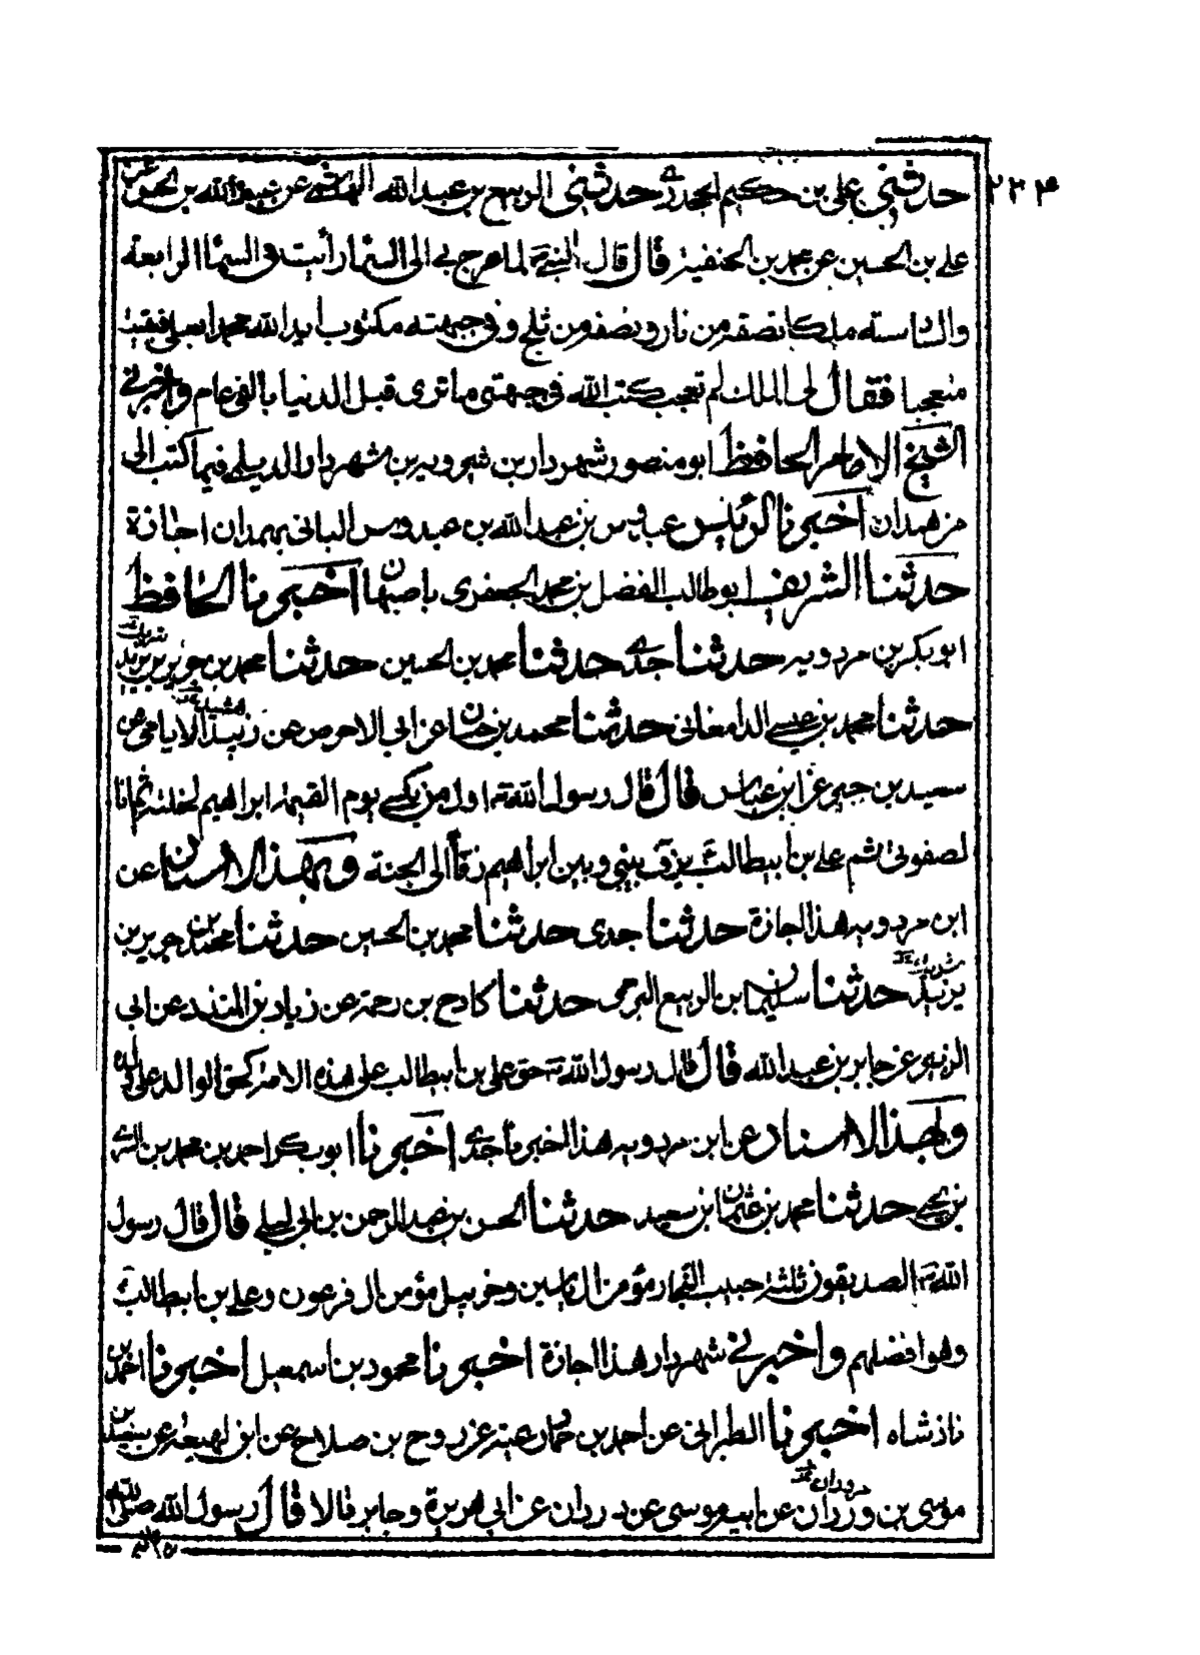 ۲۲۴
حدثنی علی بن حکیم الجحدری حدثنی الربیع بن عبدالله الهاشمی عن عبدالله بن الحسن عن
علی بن الحسین عن محمد بن الحنفیة قال قال النبی لما عرج بی الی السماء رأیت فی السماء الرابعة
والسادسة ملکا نصفه من نار ونصفه من ثلج وفی جبهته مکتوب اید الله محمدا بعلی فبقیت
متعجبا فقال لی الملک لم تعجب کتب الله فی جبهتی ما تری قبل الدنیا بالفی عام واخبرنی
الشیخ الامام الحافظ ابو منصور شهردار بن شیرویه بن شهردار الدیلمی فیما کتب الی
من همدان اخبرنا الرئیس عبدوس بن عبدالله بن عبدوس التانی بهمدان اجازة
حدثنا الشریف ابو طالب المفضل بن محمد الجعفری باصبهان اخبرنا الحافظ
ابو بکر بن مردویه حدثنا جدی حدثنا محمد بن الحسین حدثنا محمد بن جریر بن یزید
حدثنا محمد بن عیسی الدامغانی حدثنا محمد بن حسان عن ابی الاحوص عن زبید الایامی عن
سعید بن جبیر عن ابن عباس قال قال رسول الله اول من یکسی یوم القیمة ابراهیم لخلته ثم انا
لصفوتی ثم علی بن ابیطالب یزف بینی وبین ابراهیم زفا الی الجنة وبهذا الاسناد عن
ابن مردویه هذا اجازة حدثنا جدی حدثنا محمد بن الحسین حدثنا محمد بن جریر بن
یزید حدثنا سلیمان ابن الربیع البرجمی حدثنا کادح بن رحمة عن زیاد بن المنذر عن ابی
الزبیر عن جابر بن عبدالله قال قال رسول الله حق علی بن ابیطالب علی هذه الامة کحق الوالد علی ولده
وبهذا الاسناد عن ابن مردویه هذا اخبرنا جدی اخبرنا ابوبکر احمد بن محمد بن السری
بن یحیی حدثنا محمد بن عثمان ابن سعید حدثنا الحسن بن عبدالرحمن بن ابی لیلی قال قال رسول
الله الصدیقون ثلثة حبیب النجار مؤمن ال یاسین وخربیل مؤمن ال فرعون وعلی بن ابیطالب
وهو افضلهم واخبرنی شهردار هذا اجازة اخبرنا محمود بن اسمعیل اخبرنا احمد بن
فاذشاه اخبرنا الطبرانی عن احمد بن حماد رغبة عن روح بن صلاح عن ابن لهیعة عن
موسی بن وردان عن ابیه موسی عن وردان عن ابی هریرة وجابر قالا قال رسول الله صلی الله